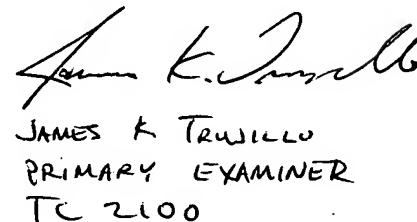 James K. Trujillo
JAMES K TRUJILLO
PRIMARY EXAMINER
TC 2100